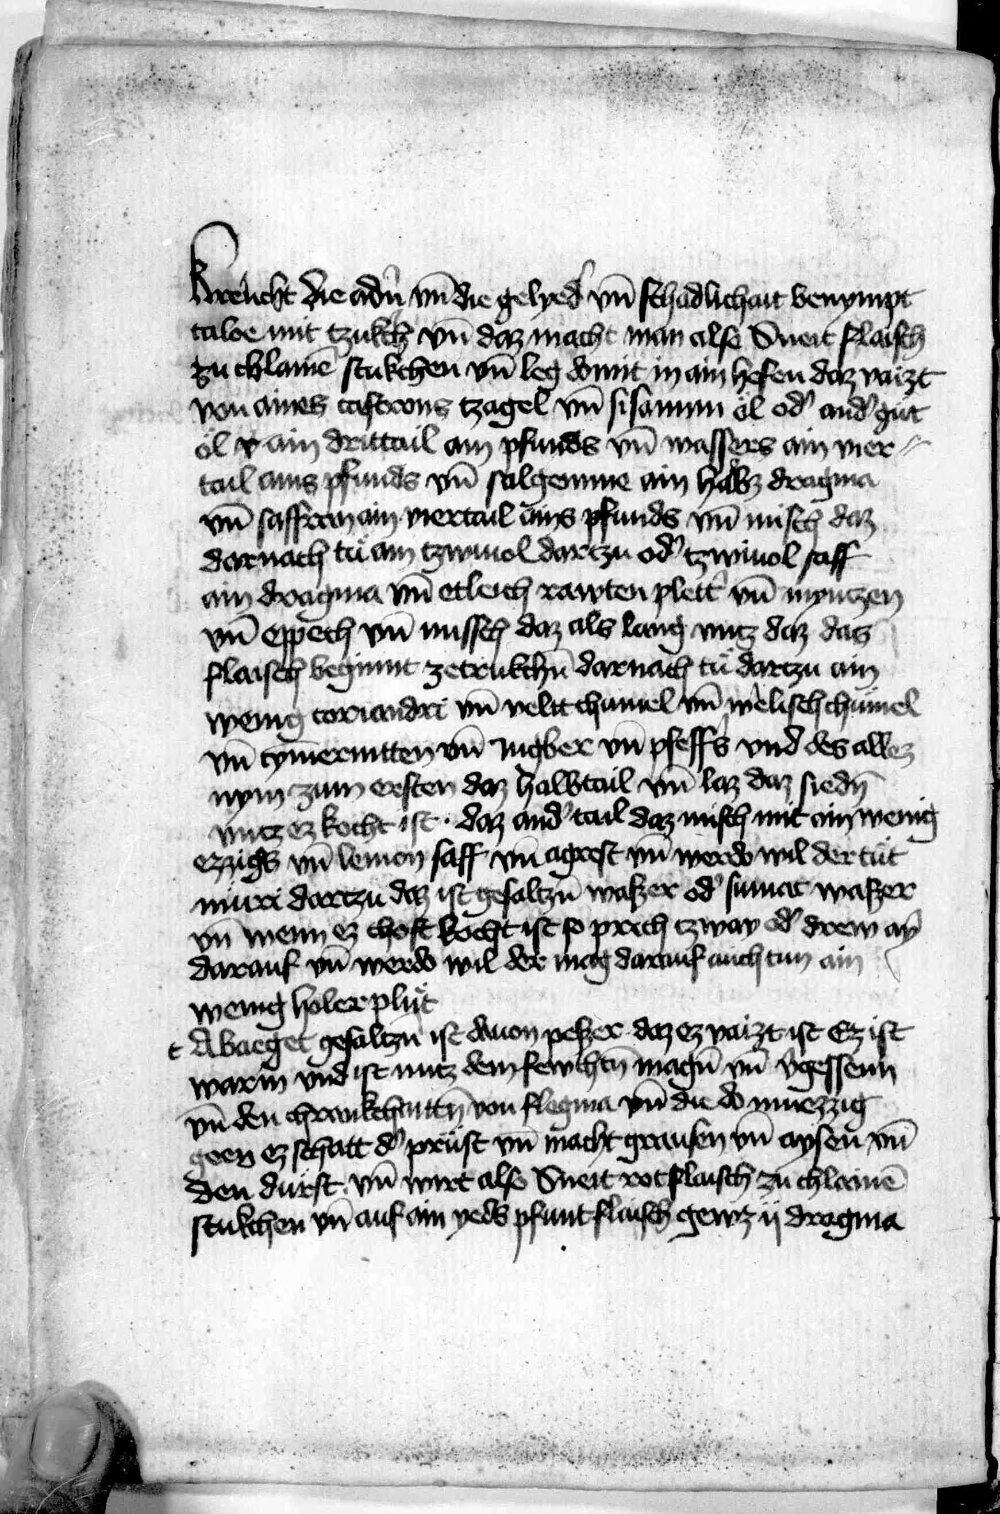 kreucht die adñ vñ die gelyed' vñ schadlichait benympt
calve mit tzukch vñ daz macht man also Sneit flaisch
zu chlainē stukchen vñ leg domit in ain hefen daz vaizt
von aines castrons tzagel vñ sisamum öl od' and' gut
öl v ain drittail ain pfunds vñ wassers ain vier
tail ains pfunds vñ salgemme ain halbz dragma
vñ saffran ain viertail ains pfunds vñ misch daz
darnach tü ain tzwiuol dartzu od' tzwiuol saff
ain dragma vñ etleich rawten plett' vñ myntzen
vñ eppech vñ missch daz als lang vntz daz das
flaisch beginnt zetrukchñ darnach tü dartzu ain
wenig coriandri vñ veltchumel vñ welischchümel
vñ cymerintten vñ Ingber vñ pfeffs vnd des allez
nym zum ersten daz halbtail vñ laz daz siedñ
vntz ez kocht ist · daz and' tail daz misch mit ain wenig
ezzigs vñ lemon saff vñ agrest vñ werdo wil der tüt
müri dartzu daz ist gesaltzñ wasser od' sumac wasser
vñ wenn ez chost kocht ist so prich tzway od' drew ay'
darauf vñ werdo wil der mag darauf auch tun ain
wenig holerplüt
t Abaeget gesaltzñ ist dauon pesser daz ez vaizt ist Ez ist
warm vnd ist nutz dem fewchtñ magñ vñ v'gessenn
vñ den chrankchaittñ von flegma vñ die do muezzig
geen ez schatt d' prüst vñ macht grausen vñ aysen vñ
den durst · vñ wirt also Sneit rot flaisch zu chlainē
stukchen vñ auf ain yeds pfunt flaisch gewz ij dragma